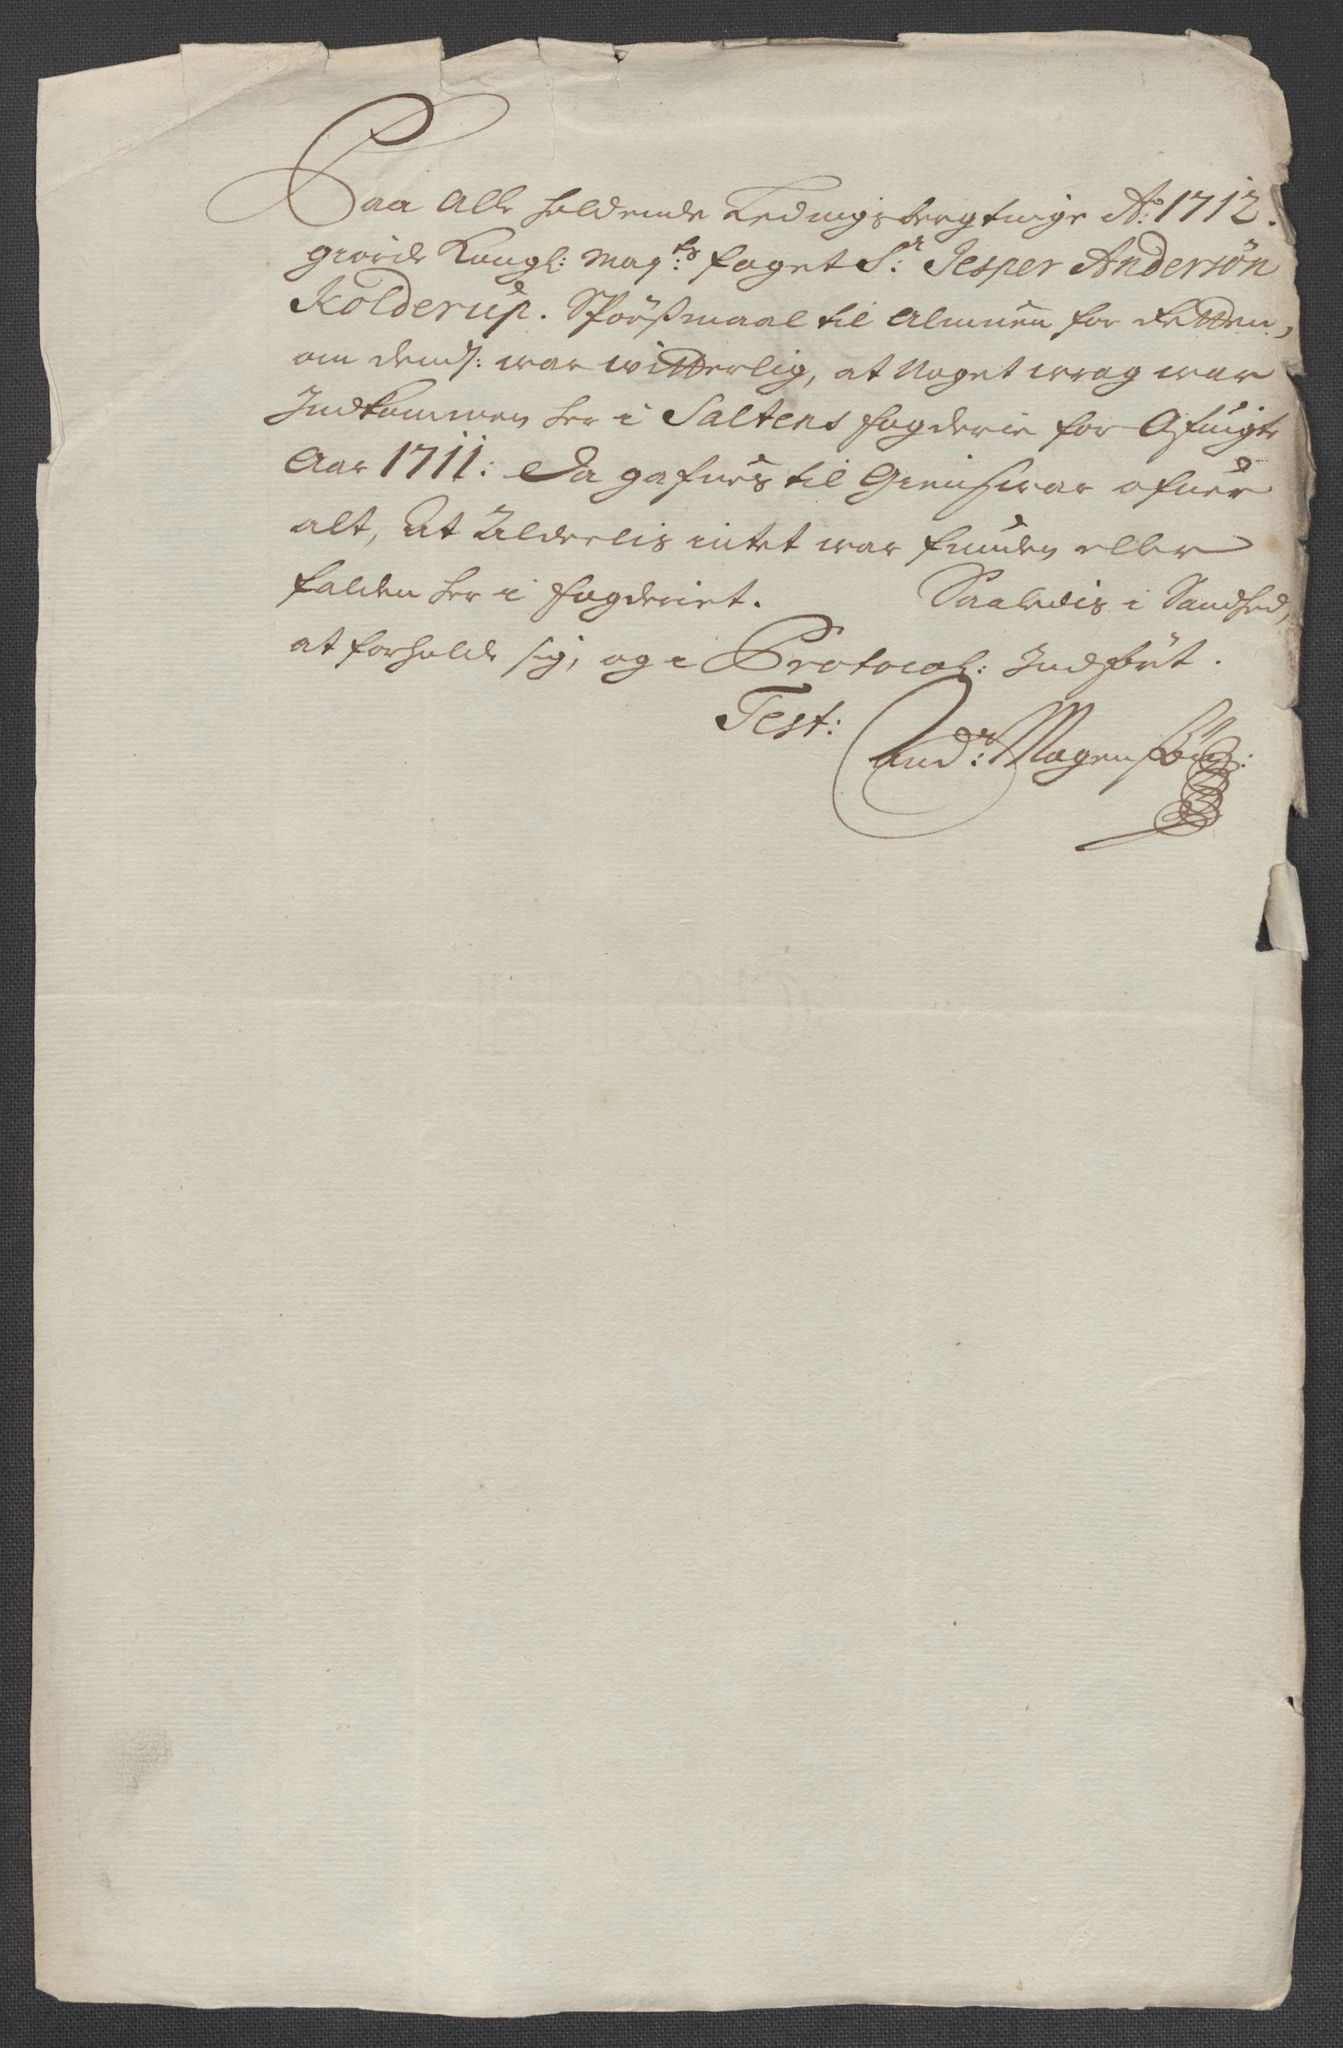 Paa Alle holdende Ledingsbergtinge Ao: 1712.
giorde Kongl: May:ts foget Sr: Jesper Andersön
Kolderup. Spörßmaal til Almuen for Retten,
om dem: war witterlig, at Noget wrag war
Indkommen her i Saltens fogderie for Afwigte
Aar 1711: Da gafues til Giensvar ofuer
alt, At Alderlis intet war funden eller
falden her i fogderiet. Saaledis i Sandhed,
at forholde sig, og i Protocol: Indfört.
Test:
And: Mogensön: